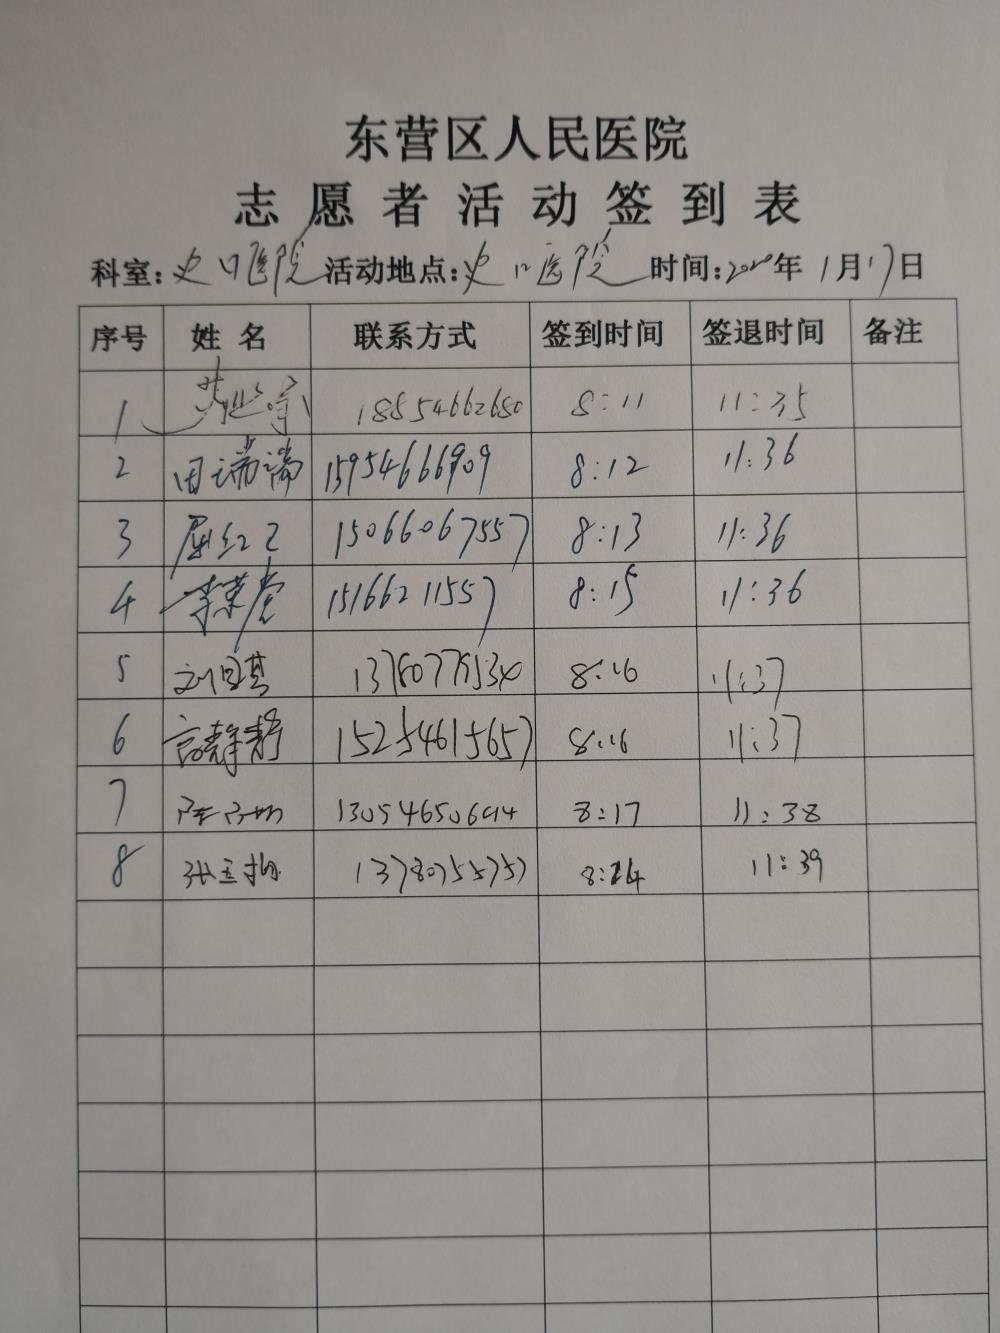 东营区人民医院
志愿者活动签到表
科室:史口医院 活动地点:史口医院 时间:2020年1月17日
序号 姓名 联系方式 签到时间 签退时间 备注
1 18554662650 8:11 11:35
2 田瑞瑞 15954666909 8:12 11:36
3 屈红卫 15066067557 8:13 11:36
4 李荣堂 15166211557 8:15 11:36
5 8:16 11:37
6 高静静 15254615657 8:16 11:37
7 8:17 11:38
8 13780755757 8:24 11:39